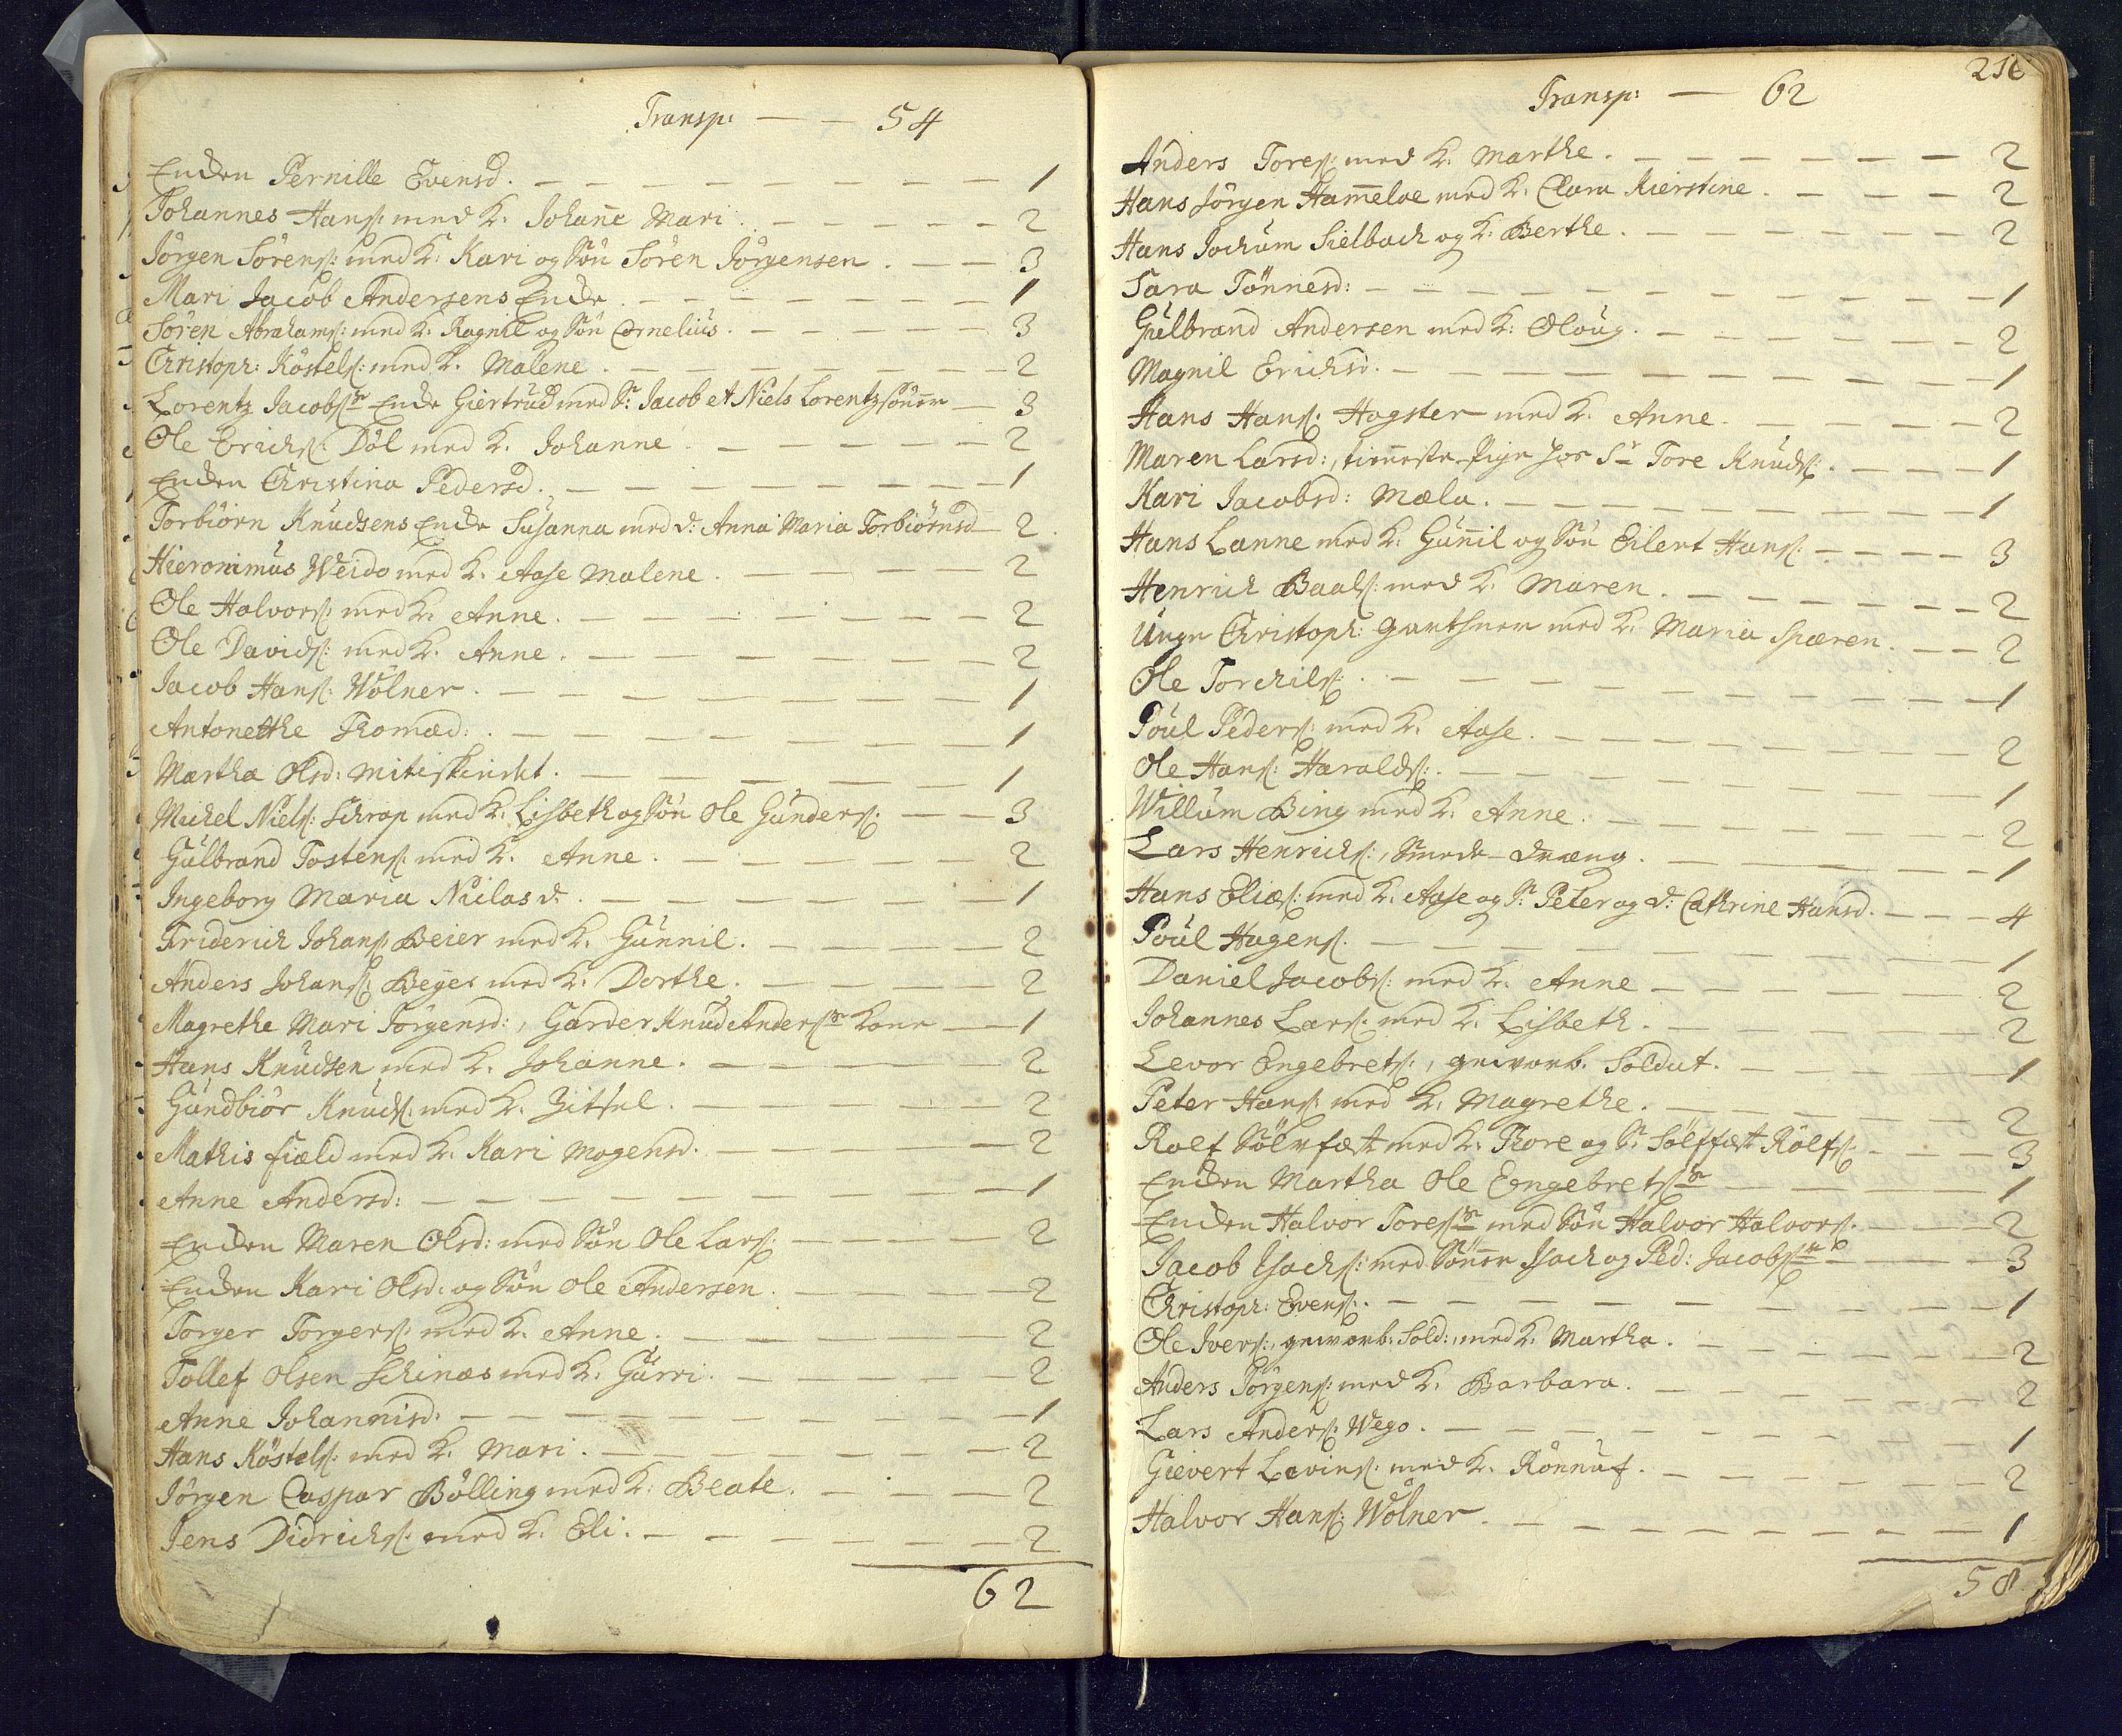 Transp: — — 54
Enken Pernille Evensd. — 1
Johannes Hans: med K. Johan̄e Mari. — 2
Jörgen Sörens: med K. Kari og Sön Sören Jörgensen. — 3
Mari Jacob Andersens Enke. — 1
Sören Abrahams: med K. Ragnil og Sön Cornelius. — 3
Christoph: Köstels: med K. Malene. — 2
Lorentz Jacobsns Enke Giertrud med S. Jacob et Niels Lorentzsönner — 3
Ole Erichs: Döl med K. Johanne. — 2
Enken Christina Pedersd. — 1
Torbiörn Knudsens Enke Susanna med d. Anna Maria Torbiörnsd — 2
Hieronimus Weido med K. Aase Malene. — 2
Ole Halvors: med K. Anne. — 2
Ole Davids: med K. Anne. — 2
Jacob Hans: Wölner. — 1
Antonetthe Thomæd:. — 1
Martha Olsd: — 1
Michel Niels: Schrap med K. Lisbeth og Sön Ole Gunders: — 3
Gulbrand Tostens: med K. Anne. — 2
Ingeborg Maria Niclas d. — 1
Friderich Johans: Beier med K. Gunnil. — 2
Anders Johans: Beyer med K. Dorthe. — 2
Magrethe Mari Jörgensd:, Garder Knud Andersns Kone — 1
Hans Knudsen med K. Johanne. — 2
Gundbiör Knuds: med K. Zitsel. — 2
Mathis Field med K. Kari Mogensd. — 2
Anne Andersd: — 1
Enken Maren Olsd: med Sön Ole Lars: — 2
Enken Kari Olsd: og Sön Ole Andersen. — 2
Torger Torgers: med K. Anne. — 2
Tollef Olsen Schinæs med K. Gurri. — 2
Anne Johannisd. — 1
Hans Köstels: med K. Mari. — 2
Jörgen Caspar Bölling med K: Beate. — 2
Jens Didrichs: med K. Eli. — 2
62
216
Transp: — 62
Anders Tores: med K. Marthe. — 2
Hans Jörgen Ham̄eloe med K. Clara Kierstine. — 2
Hans Jochum Sielbach og K. Berthe. — 2
Sara Tönnesd: — 1
Gulbrand Andersen med K: Oloug. — 2
Magnil Erichsd. — 1
Hans Hans: Hogster med K. Anne. — 2
Maren Larsd:, Pige hos Sr Tore Knuds:. — 1
Kari Jacobsd: Mæla. — 1
Hans Lanne med K. Gun̄il og Sön Eilert Hans: — 3
Henrich Baals: med K. Maren. — 2
Unge Christoph: Garthner med K. Maria Spæren. — 2
Ole Torchils:. — 1
Poul Peders: med K. Aase. — 2
Ole Hans: Haralds:. — 1
Willum Bing med K. Anne. — 2
Lars Henrichs:, Smede-Dræng. — 1
Hans Elias: med K. Aase og S. Peter og d: Cathrine Hansd. — 4
Poul Hagens: — 1
Daniel Jacobs: med K. Anne — 2
Johannes Lars: med K. Lisbeth. — 2
Levor Engebrets:, gevorb. Soldat. — 1
Peter Hans: med K. Magrethe. — 2
Rolf Sölvfæst med K. Thore og S. Sölffæst Rolfs: — 3
Enken Martha Ole Engebretsns — 1
Enken Halvor Toresns med Sön Halvor Halvors: — 2
Jacob Isachs: med Sönner Isach og Ped: Jacobs — 3
Christoph: Evens:. — 1
Ole Ivers:, gevorb: Sold:, med K. Martha. — 2
Anders Jörgens: med K. Barbara. — 2
Lars Anders: Wego. — 1
Gievert Levins: med K. Rönnuf. — 2
Halvor Hans: Wölner. — 1
58